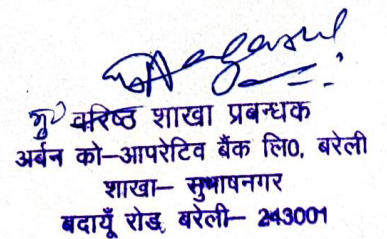 वरिष्ठ शाखा प्रबन्धक
अर्बन को–आपरेटिव बैंक लि0, बरेली
शाखा– सुभाषनगर
बदायूँ रोड, बरेली– 243001